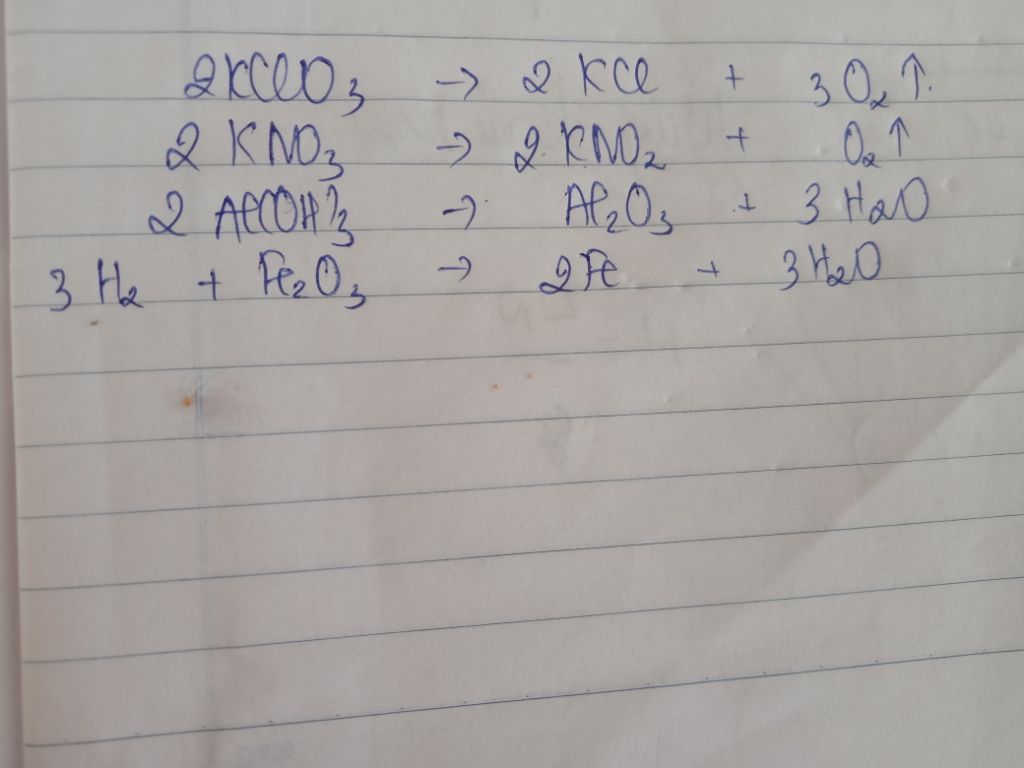 2KClO₃ → 2 KCl + 3 O₂ ↑.
2 KNO₃ → 2 KNO₂ + O₂ ↑
2 Al(OH)₃ → Al₂O₃ + 3 H₂O
3 H₂ + Fe₂O₃ → 2Fe + 3H₂O